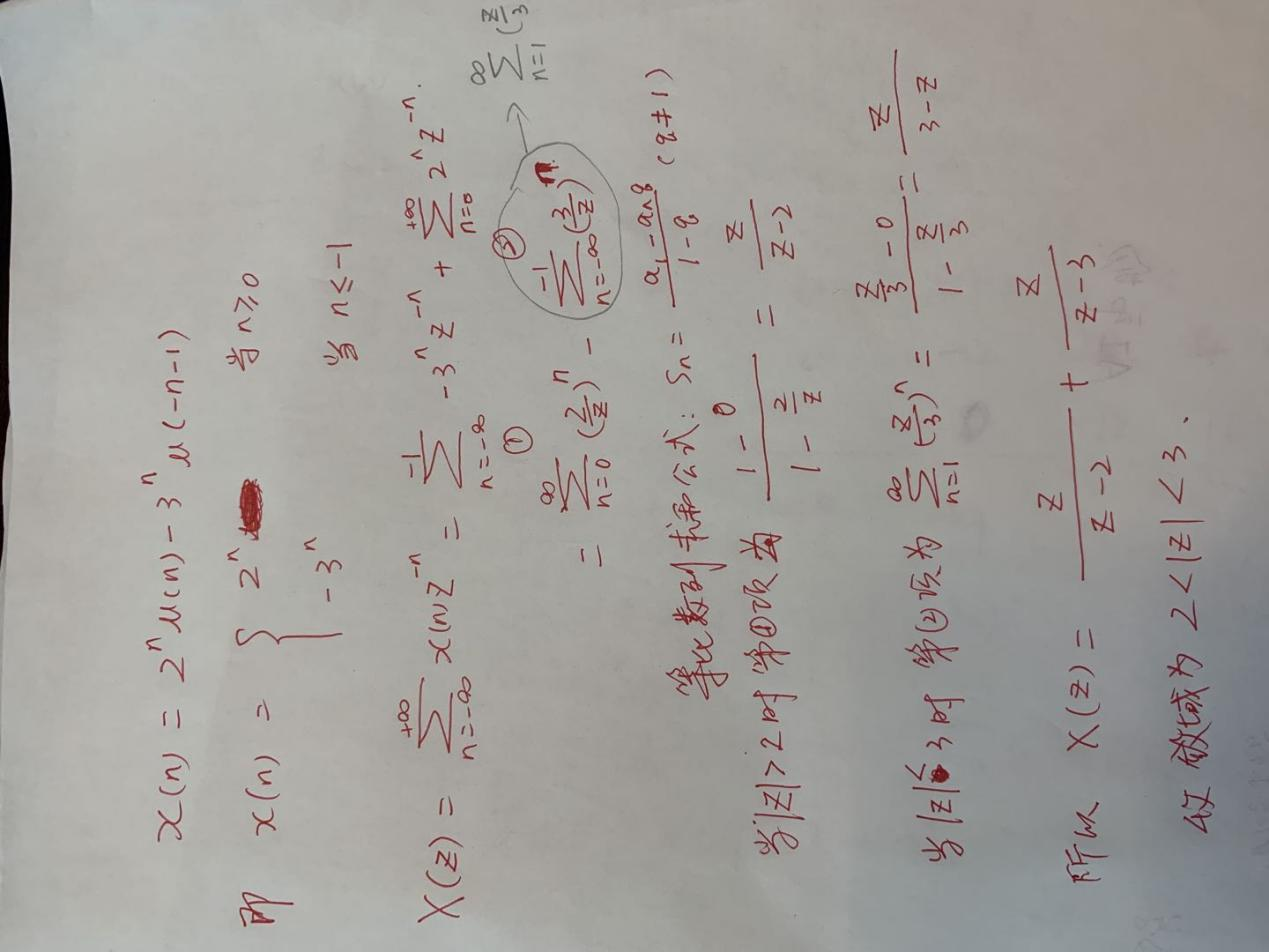 x(n) = 2ⁿu(n) - 3ⁿu(-n-1)
即 x(n) = { 2ⁿ 当 n≥0
-3ⁿ 当 n≤-1
X(z) = ∑_{n=-∞}^{+∞} x(n)z⁻ⁿ = ∑_{n=-∞}^{-1} -3ⁿz⁻ⁿ + ∑_{n=0}^{+∞} 2ⁿz⁻ⁿ.
① ②
= ∑_{n=0}^{∞} (2/z)ⁿ - ∑_{n=-∞}^{-1} (3/z)ⁿ → ∑_{n=1}^{∞} (z/3
等比数列求和公式: Sn = (a₁ - anq)/(1 - q) (q≠1)
当|z|>2时 第①项为 (1 - 0)/(1 - 2/z) = z/(z-2)
当|z|<3时 第②项为 ∑_{n=1}^{∞} (z/3)ⁿ = (z/3 - 0)/(1 - z/3) = z/(3-z)
所以 X(z) = z/(z-2) + z/(z-3)
收敛域为 2<|z|<3.